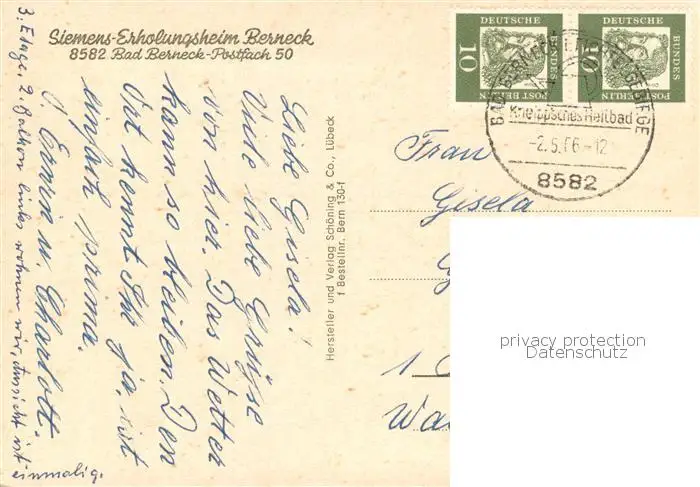 Siemens-Erholungsheim Berneck
8582 Bad Berneck-Postfach 50
Liebe Gisela!
Viele liebe Grüße
von hier. Das Wetter
kann so bleiben. Den
Ort kennt Ihr ja, ist
einfach prima.
Erwin u. Charlott.
3. Etage, 2. Balkon links wohnen wir, Aussicht ist
einmalig.
Hersteller und Verlag Schöning & Co., Lübeck
f Bestellnr. Bern 130-f
DEUTSCHE
BUNDES
POST BERLIN
10
DEUTSCHE
BUNDES
POST BERLIN
10
BAD BERNECK FICHTELGEBIRGE
Kneippsches Heilbad
-2.5.66-12
8582
Frau
Gisela
G
1
Wa
privacy protection
Datenschutz